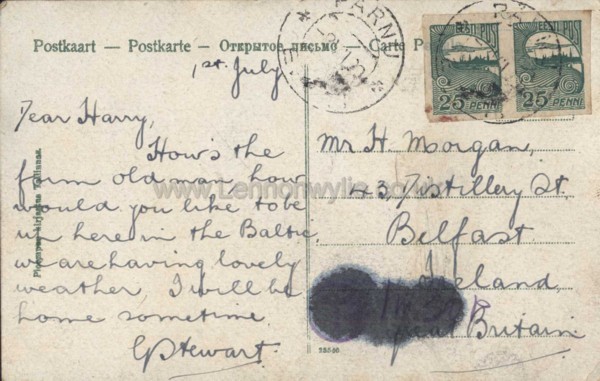 Postkaart — Postkarte — Открытое письмо — Carte Po
PÄRNU
EESTI POST
25 PENNI
25 PENNI
1st July
Dear Harry,
How's the
form old man, how
would you like to be
up here in the Baltic,
we are having lovely
weather, I will be
home sometime.
GPStewart.
Mr H. Morgan,
43, Distillery St.
Belfast
Ireland
Great Britain.
www.Lennonwylie.co.uk
Tallinnas.